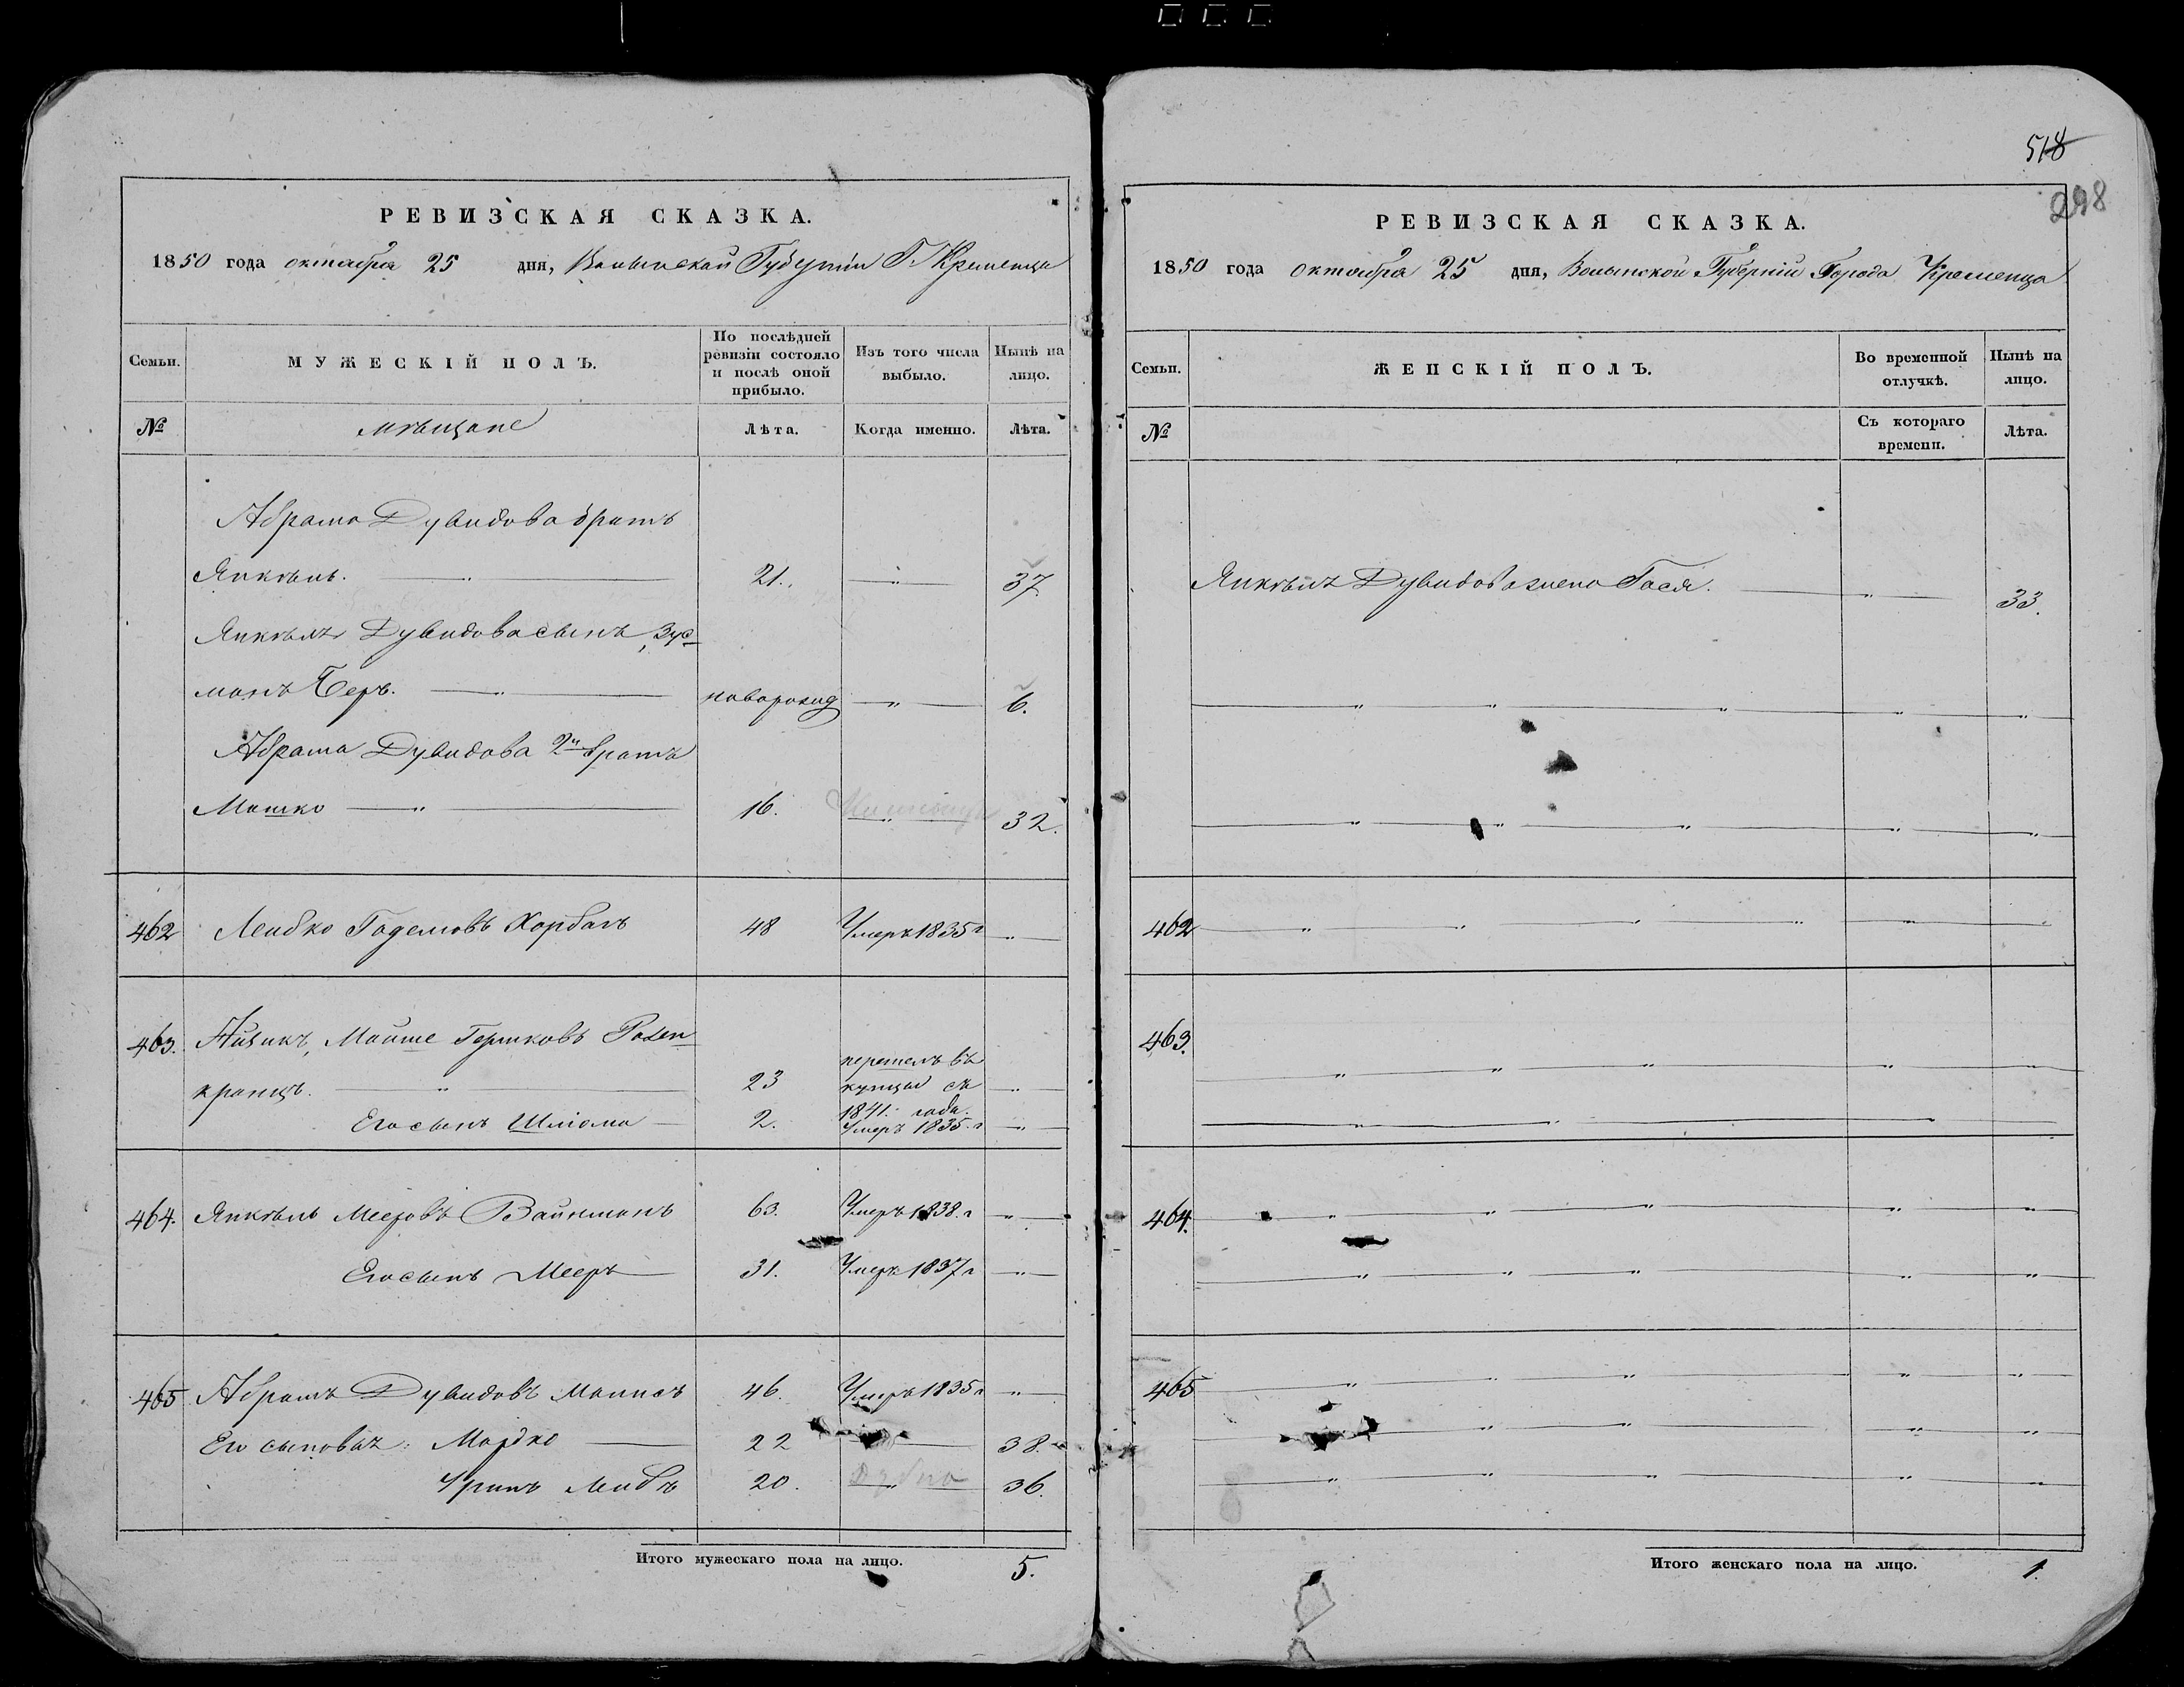 РЕВИЗСКАЯ СКАЗКА.
1850 года октября 25 дня, Волынской Губерніи Г. Кременца
Семьи. МУЖЕСКІЙ ПОЛЪ. По послѣдней ревизіи состояло и послѣ оной прибыло. Изъ того числа выбыло. Нынѣ на лицо.
№ мѣщане Лѣта. Когда именно. Лѣта.
Абрама Дувидова братъ
Янкель. 21. " 37.
Янкеля Дувидова сынъ, Зус-
манъ Беръ. новорожд " 6.
Абрама Дувидова 2й братъ
Мошко " 16. " 32.
462 Лейбко Хорбаль 48 Умеръ 1835 г "
463. Айзикъ, Мойше Гершковъ Розен
кранцъ. " 23 перешелъ въ купцы съ 1841. года. "
Его сынъ Шліома 2. Умеръ 1835. г "
464. Янкель Мееровъ Вайнманъ 63. Умеръ 1838. г "
Его сынъ Мееръ 31. Умеръ 1837 г "
465 Абрамъ Дувидовъ 46. Умеръ 1835 г "
Его сыновья: Мордко 22 38.
Лейбъ 20. Дубно " 36.
Итого мужескаго пола на лицо. 5.
518
298
РЕВИЗСКАЯ СКАЗКА.
1850 года октября 25 дня, Волынской Губерніи Города Кременца
Семьи. ЖЕНСКІЙ ПОЛЪ. Во временной отлучкѣ. Нынѣ на лицо.
№ Съ котораго времени. Лѣта.
Янкеля Дувидова жена Гася. " 33.
" " " " "
" " " " "
462 " " " " " "
463. " " " " "
" " "
464. " " " " "
" " " " "
465 " " " " "
" " " "
" " " " "
Итого женскаго пола на лицо. 1.